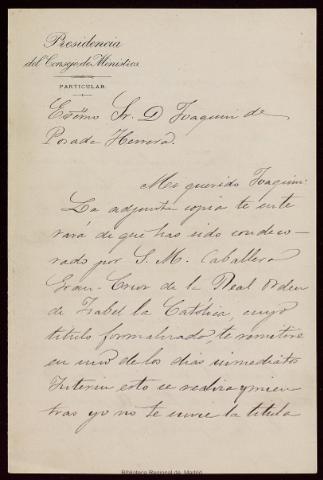 Presidencia
del Consejo de Ministros
PARTICULAR
Excmo Sr. D Joaquin de
Posada Herrera.
Mi querido Joaquin:
La adjunta copia te ente
rará de que has sido condeco
rado por S. M. Caballero
Gran-Cruz de la Real Orden
de Isabel la Católica, cuyo
titulo formalizado, te remitiré
en uno de los dias inmediatos
Interin esto se realiza y mien
tras yo no te envie la titula
Biblioteca Regional de Madrid